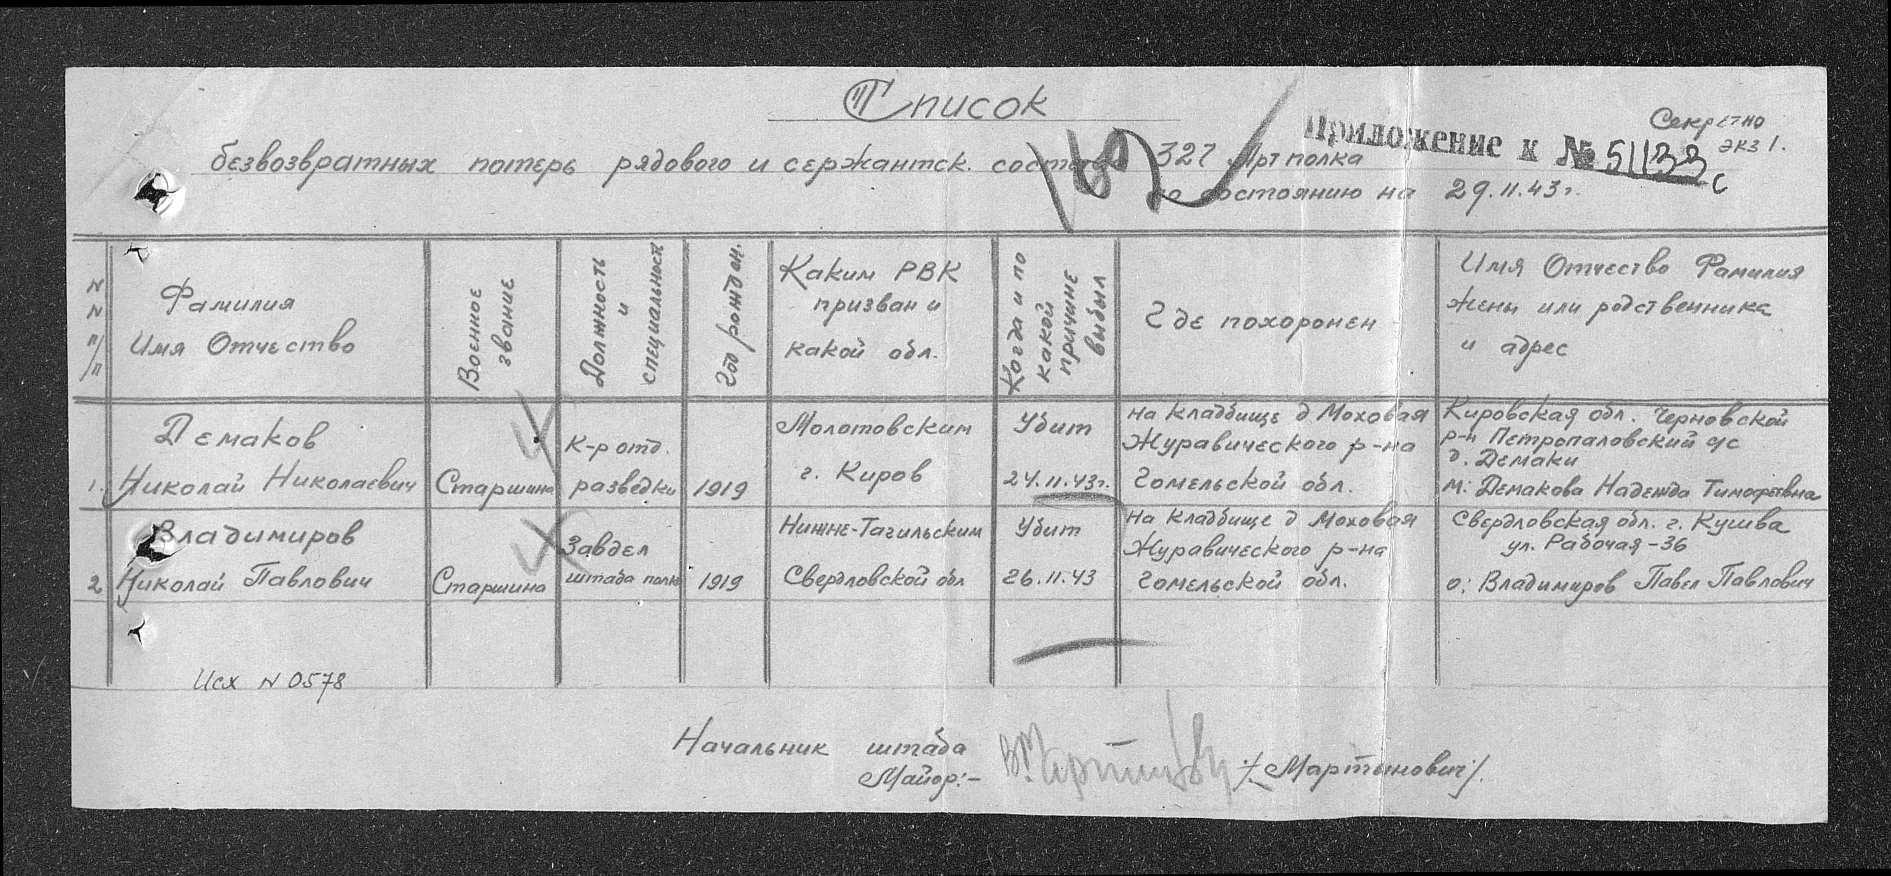 Список
Секретно
экз 1.
Приложение к № 51133с
безвозвратных потерь рядового и сержантск. состава 327 Артполка
по состоянию на 29.11.43г.
NN п/п
Фамилия
Имя Отчество
Военное
звание
Должность
и
специальность
Год рожден.
Каким РВК
призван и
какой обл.
Когда и по
какой
причине
выбыл
Где похоронен
Имя Отчество Фамилия
жены или родственника
и адрес
1.
Демаков
Николай Николаевич
Старшина
К-р отд.
разведки
1919
Молотовским
г. Киров
Убит
24.11.43г.
на кладбище д Моховая
Журавического р-на
Гомельской обл.
Кировская обл. Черновской
р-н Петропаловский с/с
д. Демаки
м: Демакова Надежда Тимофеевна
2
Владимиров
Николай Павлович
Старшина
Завдел
штаба полка
1919
Нижне-Тагильским
Свердловской обл
Убит
26.11.43
на кладбище д Моховая
Журавического р-на
Гомельской обл.
Свердловская обл. г. Кушва
ул. Рабочая-36
о: Владимиров Павел Павлович
Исх N 0578
Начальник штаба
Майор:-
/Мартынович/.